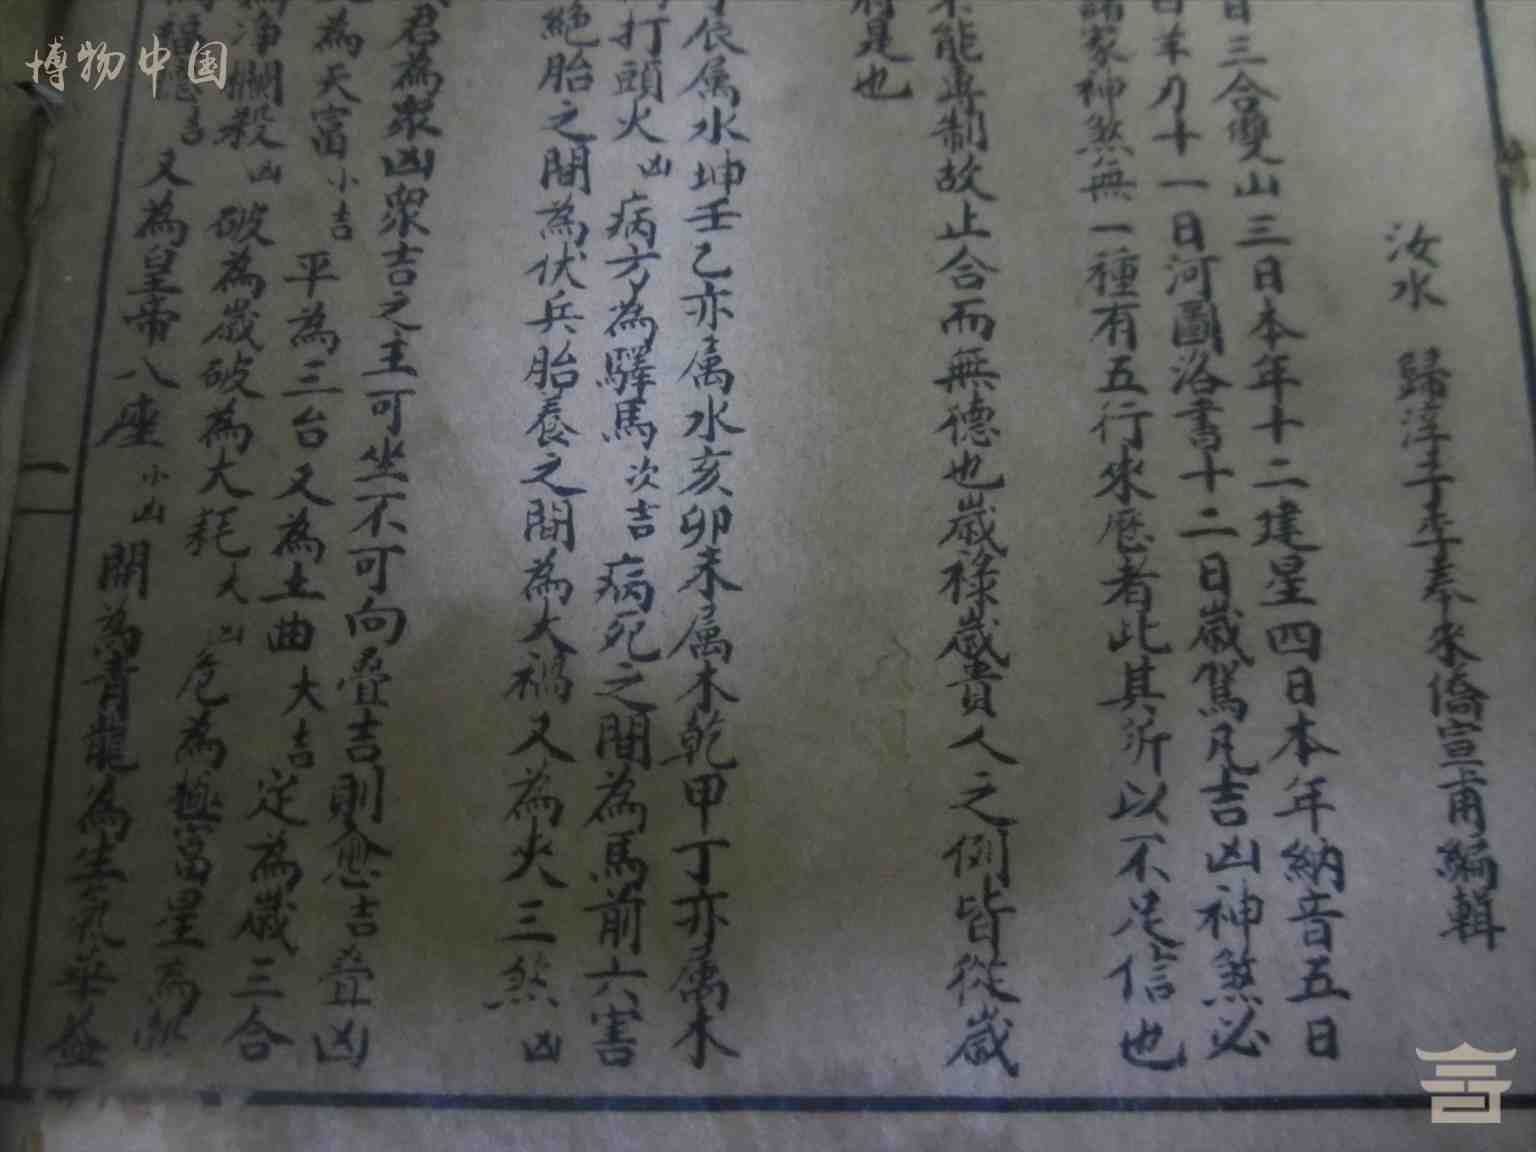 博物中国
汝水 歸淳子李奉來僑宣甫編輯
日三合雙山三日本年十二建星四日本年納音五日
十一日河圖洛書十二日歲駕凡吉凶神煞必
諸家神煞無一種有五行來歷者此其所以不足信也
不能專制故止合而無德也歲祿歲貴人之例皆從歲
是也
辰属水坤壬乙亦属水亥卯未属木乾甲丁亦属木
打頭火凶 病方為驛馬次吉 病死之間為馬前六害
絕胎之間為伏兵胎養之間為大禍又為夾三煞凶
君為衆凶衆吉之主可坐不可向疊吉則愈吉疊凶
為天富小吉 平為三台又為土曲大吉 定為歲三合
為淨欄殺凶 破為歲破為大耗大凶 危為極富星為
又為皇帝八座小凶 開為青龍為生氣華蓋
一